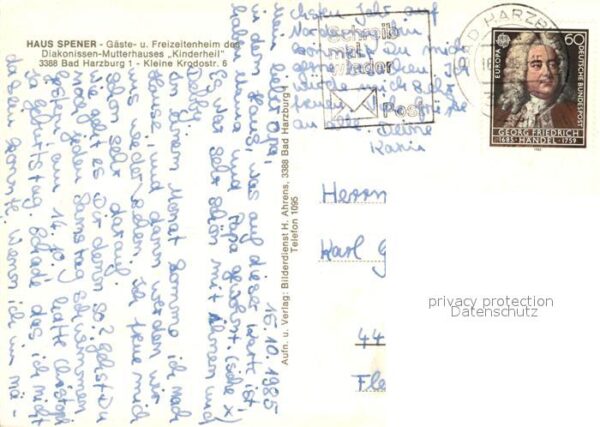 HAUS SPENER - Gäste- u. Freizeitenheim des
Diakonissen-Mutterhauses „Kinderheil"
3388 Bad Harzburg 1 - Kleine Krodostr. 6
15.10.1985
Mein lieber Opa!
In dem Haus, was auf dieser Karte ist
haben Mama und Papa gewohnt (siehe x)
Es war sehr schön mit ihnen und
In einem Monat komme ich nach
Hause, und dann werden wir
uns wiedersehen. Ich freue mich
schon sehr darauf.
Wie geht es Dir denn so? gehst Du
jeden Samstag schwimmen
Gestern am 14.10. hatte Christoph
ja Geburtstag. Schade das ich nicht
da sein konnte. Wenn ich im nä-
chsten Jahr auf
Norderney bin
kommst Du mich
Ich
würde mich sehr
freuen. Grüße
an alle Deine
Karin
Aufn. u. Verlag: Bilderdienst H. Ahrens, 3388 Bad Harzburg 1
Telefon 1095
Schreib
mal
wieder
Post
BAD HARZB
EUROPA
60
DEUTSCHE BUNDESPOST
GEORG FRIEDRICH
1685 HÄNDEL 1759
1985
Herrn
Karl G
44
Fle
privacy protection
Datenschutz